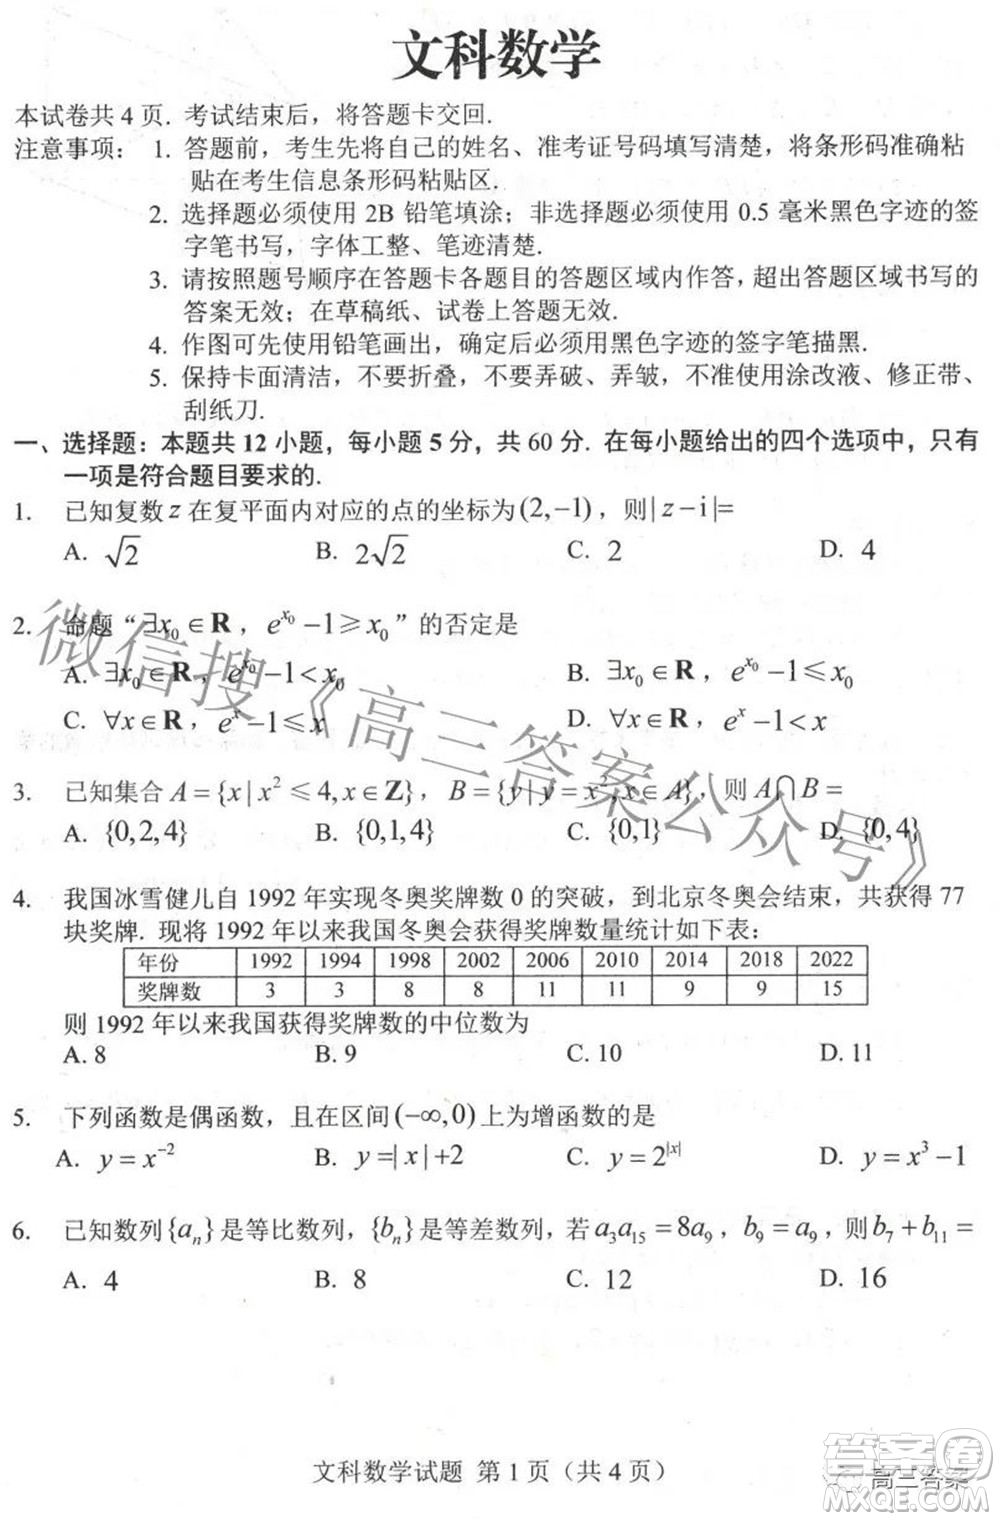 文科数学
本试卷共 4 页. 考试结束后，将答题卡交回.
注意事项： 1. 答题前，考生先将自己的姓名、准考证号码填写清楚，将条形码准确粘
贴在考生信息条形码粘贴区.
2. 选择题必须使用 2B 铅笔填涂；非选择题必须使用 0.5 毫米黑色字迹的签
字笔书写，字体工整、笔迹清楚.
3. 请按照题号顺序在答题卡各题目的答题区域内作答，超出答题区域书写的
答案无效；在草稿纸、试卷上答题无效.
4. 作图可先使用铅笔画出，确定后必须用黑色字迹的签字笔描黑.
5. 保持卡面清洁，不要折叠，不要弄破、弄皱，不准使用涂改液、修正带、
刮纸刀.
一、选择题：本题共 12 小题，每小题 5 分，共 60 分. 在每小题给出的四个选项中，只有
一项是符合题目要求的.
1. 已知复数 z 在复平面内对应的点的坐标为 (2,−1) ，则 | z − i |=
A. √2 B. 2√2 C. 2 D. 4
2. 命题“ ∃x₀ ∈ R ， e^{x₀} −1 ⩾ x₀ ”的否定是
A. ∃x₀ ∈ R ， e^{x₀} −1 < x₀ B. ∃x₀ ∈ R ， e^{x₀} −1 ⩽ x₀
C. ∀x ∈ R ， e^x −1 ⩽ x D. ∀x ∈ R ， e^x −1 < x
3. 已知集合 A = {x | x² ⩽ 4, x ∈ Z} ， B = {y | y = x², x ∈ A} ，则 A ∩ B =
A. {0,2,4} B. {0,1,4} C. {0,1} D. {0,4}
4. 我国冰雪健儿自 1992 年实现冬奥奖牌数 0 的突破，到北京冬奥会结束，共获得 77
块奖牌. 现将 1992 年以来我国冬奥会获得奖牌数量统计如下表：
年份 1992 1994 1998 2002 2006 2010 2014 2018 2022
奖牌数 3 3 8 8 11 11 9 9 15
则 1992 年以来我国获得奖牌数的中位数为
A. 8 B. 9 C. 10 D. 11
5. 下列函数是偶函数，且在区间 (−∞,0) 上为增函数的是
A. y = x⁻² B. y =| x | +2 C. y = 2^{|x|} D. y = x³ −1
6. 已知数列 {aₙ} 是等比数列，{bₙ} 是等差数列，若 a₃a₁₅ = 8a₉ ， b₉ = a₉ ，则 b₇ + b₁₁ =
A. 4 B. 8 C. 12 D. 16
微信搜《高三答案公众号》
文科数学试题 第 1 页（共 4 页）
答案圈
高三答案
MXQE.COM